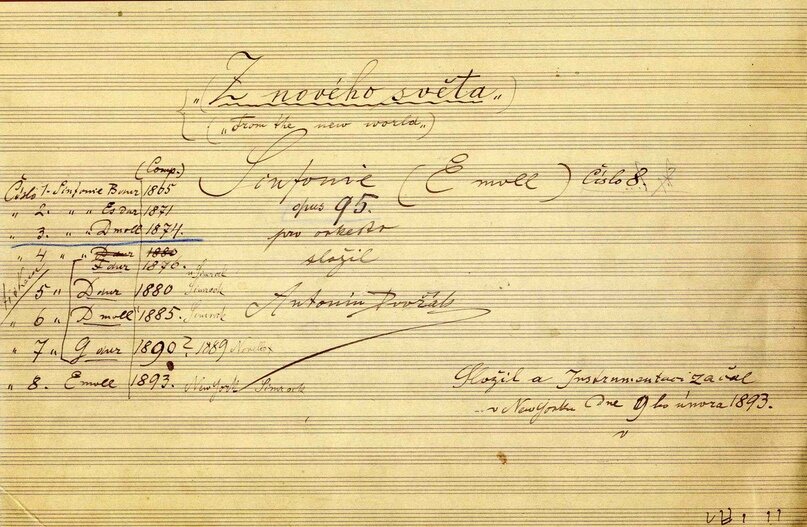 „Z nového světa„
(„From the new world„)
Sinfonie (E moll) Číslo 8.
opus 95.
pro orkestr
složil
Antonín Dvořák
(Comp.)
Číslo 1. Sinfonie B dur 1865
„ 2. „ „ Es dur 1871
„ 3. „ „ D moll 1874.
„ 4 „ D dur 1880
F dur 1876. Simrock
„ 5 „ D dur 1880 Simrock
„ 6 „ D moll 1885. Simrock
„ 7 „ G dur 1890? 1889 Novello
„ 8. E moll 1893. New York Simrock
Složil a Instrumentaci začal
v New Yorku Dne 9ho února 1893.